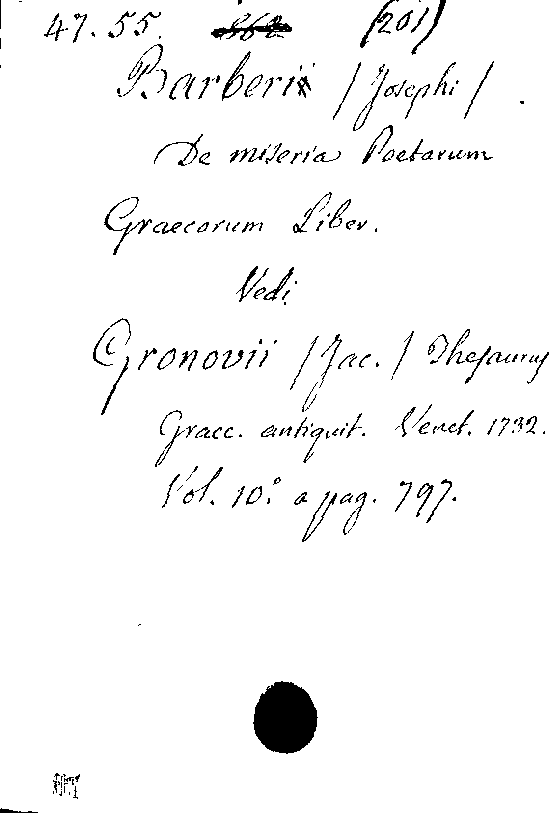 47. 55. (201)
Barberii / Josephi /.
De miseria Poetarum
Graecorum Liber.
Vedi
Gronovii / Jac. / Thesaurus
Graec. antiquit. Venet. 1732.
Vol. 10.° a pag. 797.